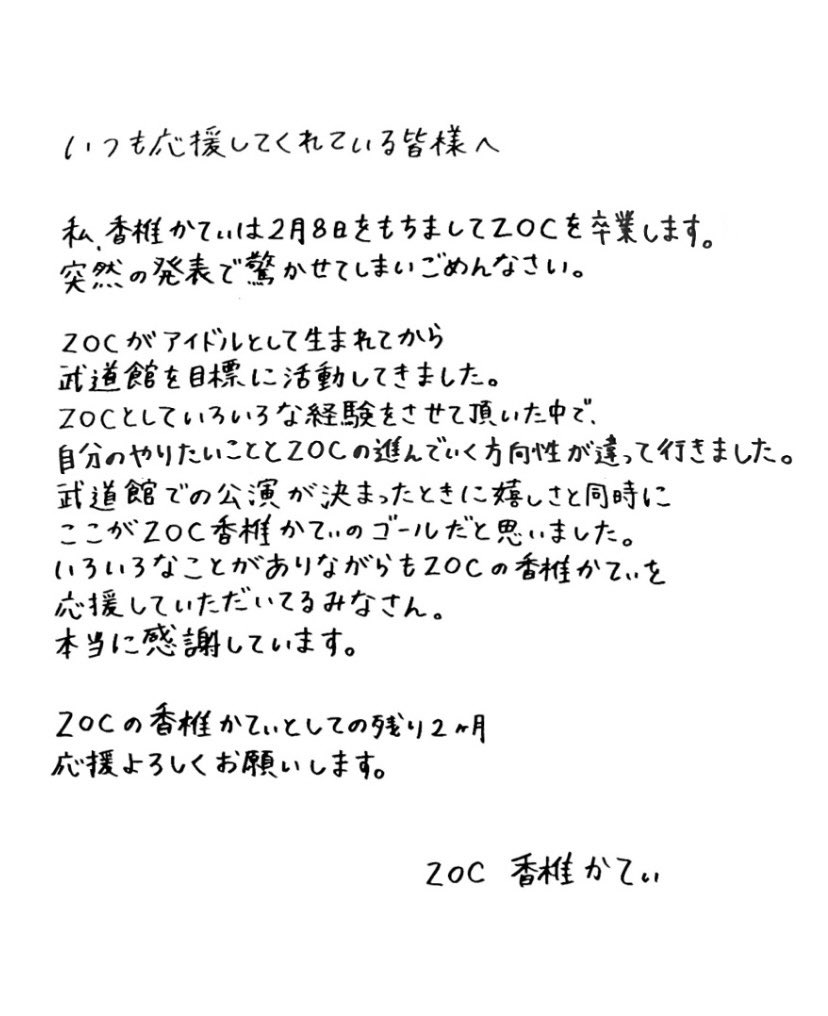 いつも応援してくれている皆様へ
私、香椎かてぃは2月8日をもちましてZOCを卒業します。
突然の発表で驚かせてしまいごめんなさい。
ZOCがアイドルとして生まれてから
武道館を目標に活動してきました。
ZOCとしていろいろな経験をさせて頂いた中で、
自分のやりたいこととZOCの進んでいく方向性が違って行きました。
武道館での公演が決まったときに嬉しさと同時に
ここがZOC香椎かてぃのゴールだと思いました。
いろいろなことがありながらもZOCの香椎かてぃを
応援していただいてるみなさん。
本当に感謝しています。
ZOCの香椎かてぃとしての残り2ヶ月
応援よろしくお願いします。
ZOC 香椎かてぃ